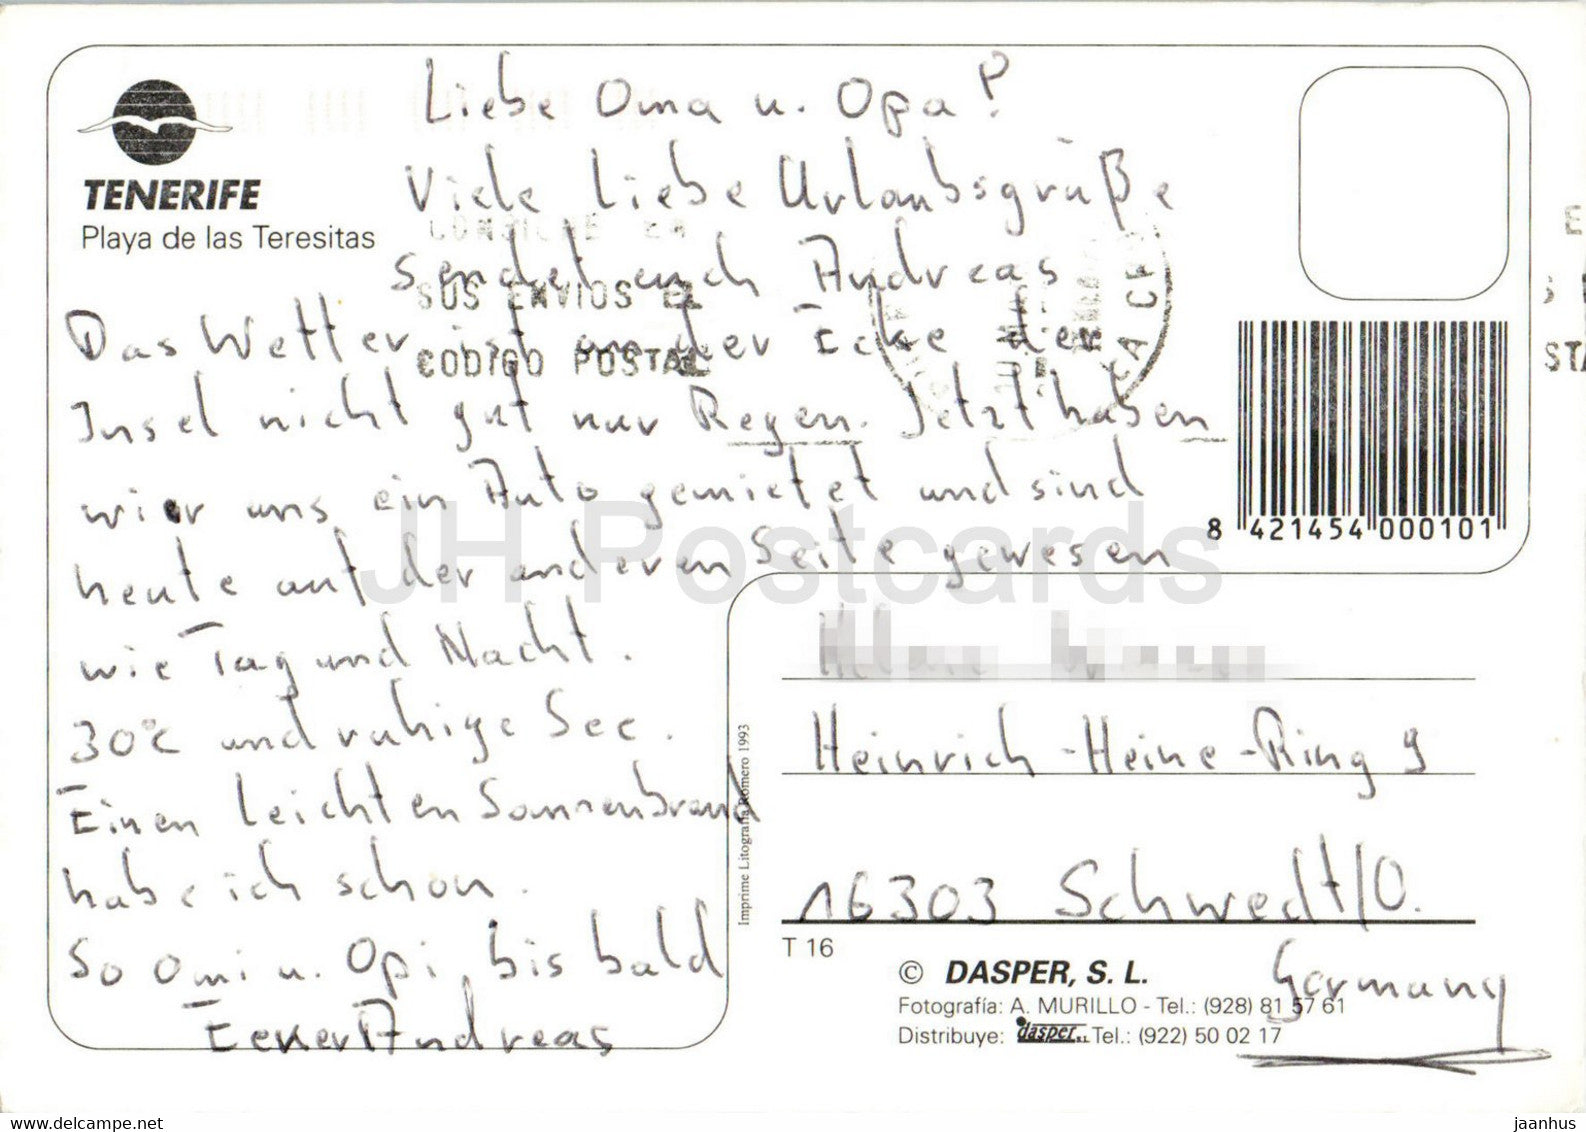 Liebe Oma u. Opa!
Viele liebe Urlaubsgrüße
sendet euch Andreas
Das Wetter ist an der Ecke der
Insel nicht gut nur Regen. Jetzt haben
wier uns ein Auto gemietet und sind
heute auf der anderen Seite gewesen
wie Tag und Nacht.
30°C und ruhige See.
Einen leichten Sonnenbrand
habe ich schon.
So Omi u. Opi, bis bald
Eeker Andreas
TENERIFE
Playa de las Teresitas
CONSIGNE EN
SUS ENVIOS EL
CODIGO POSTAL
8 421454 000101
Heinrich-Heine-Ring 9
16303 Schwedt/O.
Germany
Imprime Litografía Romero 1993
T 16
© DASPER, S. L.
Fotografía: A. MURILLO - Tel.: (928) 81 57 61
Distribuye: dasper S.L. Tel.: (922) 50 02 17
JH Postcards
delcampe.net
jaanhus